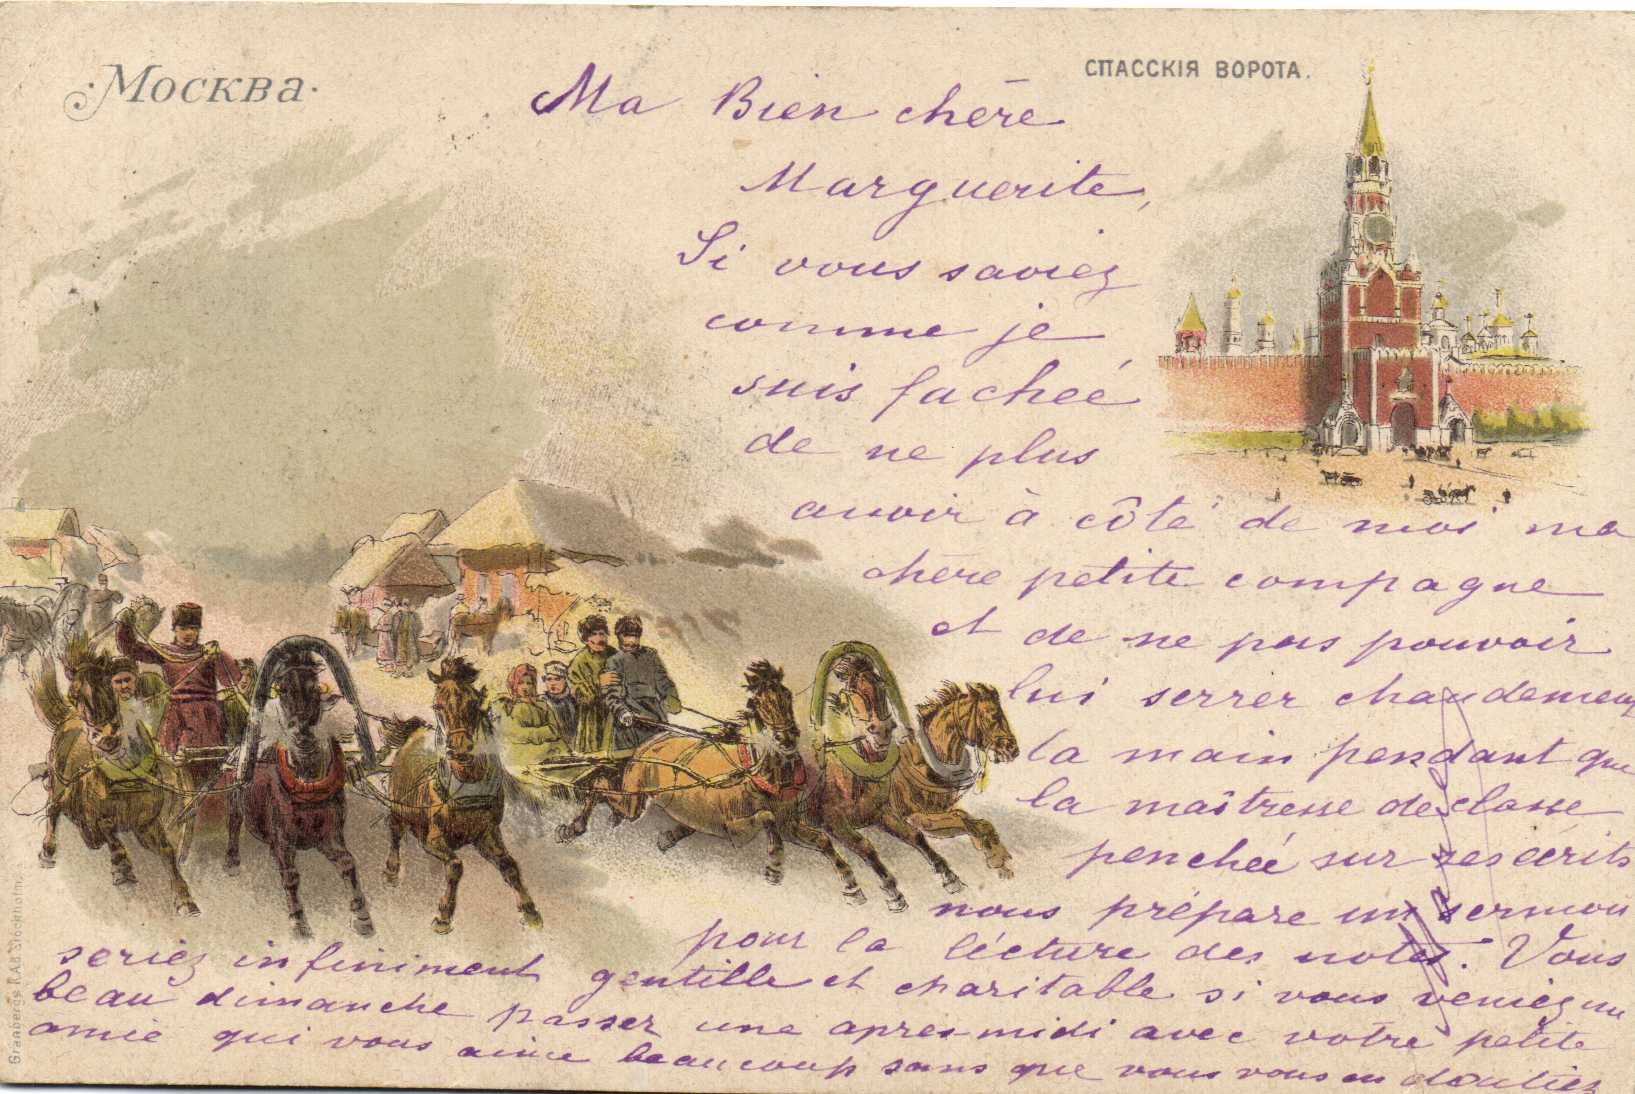 Москва.
СПАССКIЯ ВОРОТА.
Ma Bien chère
Marguerite,
Si vous saviez
comme je
suis facheé
de ne plus
auvoir à côté de moi ma
chère petite compagne
et de ne pas pouvoir
lui serrer chaudement
la main pendant que
la maîtresse de classe
penchée sur ses écrits
nous prépare un sermon
pour la lécture des notes. Vous
seriez infiniment gentille et charitable si vous veniez un
beau dimanche passer une apres-midi avec votre petite
amie qui vous aime beaucoup sans que vous vous en doutiez
Granbergs K.A.B. Stockholm.